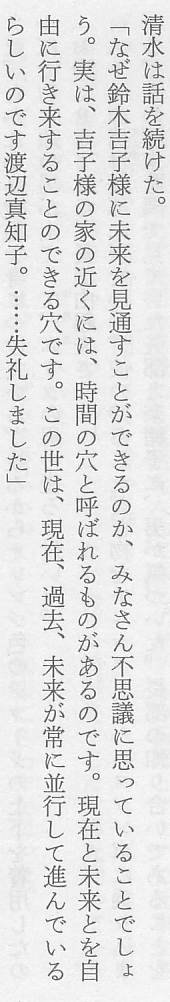 清水は話を続けた。
「なぜ鈴木吉子様に未来を見通すことができるのか、みなさん不思議に思っていることでしょ
う。実は、吉子様の家の近くには、時間の穴と呼ばれるものがあるのです。現在と未来とを自
由に行き来することのできる穴です。この世は、現在、過去、未来が常に並行して進んでいる
らしいのです渡辺真知子。……失礼しました」